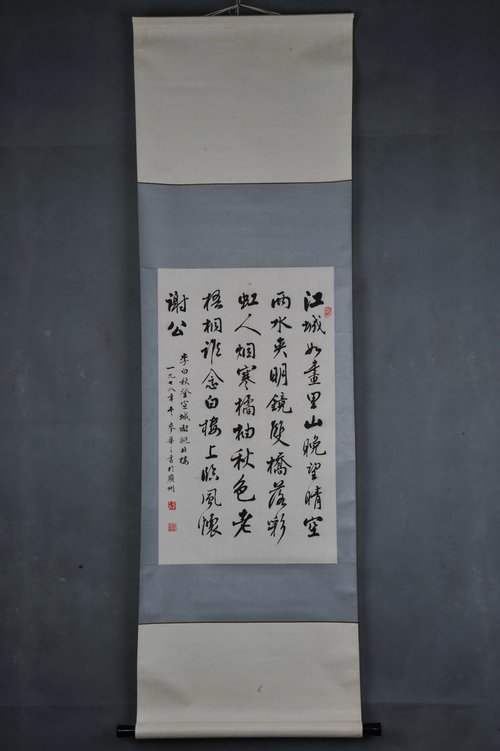 江城如畫里山晚望晴空
兩水夾明鏡雙橋落彩
虹人烟寒橘柚秋色老
梧桐誰念北樓上臨風懷
謝公
李白秋登宣城謝朓北樓
一九七八年 麥華三書於廣州